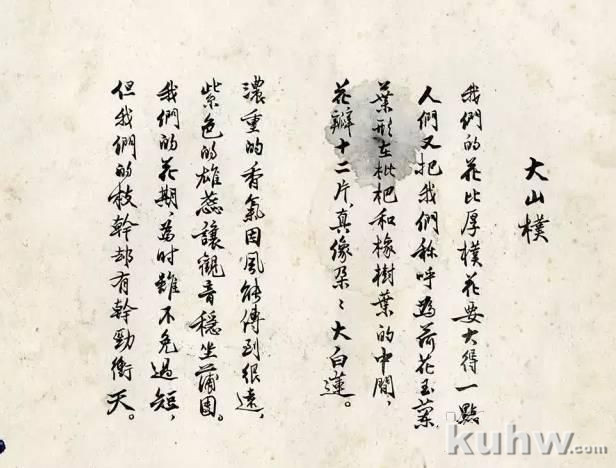 大山樸
我們的花比厚樸花要大得一點
人們又把我們称呼為荷花玉蘭
葉形在枇杷和橡樹葉的中間，
花瓣十二片，真像朵〻大白蓮。
濃重的香氣因風能傳到很遠，
紫色的雄蕊讓觀音穩坐蒲團。
我們的花期，為时雖不免過短，
但我們的枝幹却有幹勁衝天。
kuhw.com